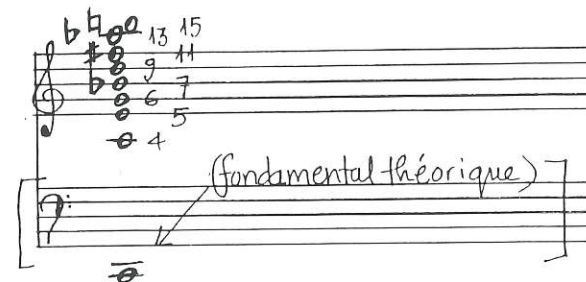 13 15
11
9
7
6
5
4
(fondamental théorique)